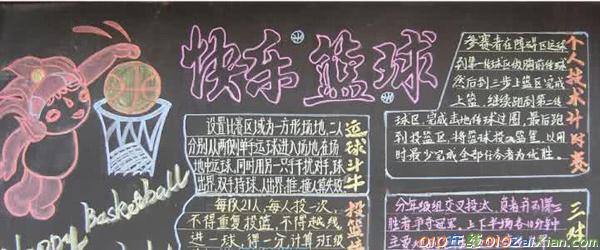 快乐篮球
Happy Basketball
运球斗牛
设置比赛区域为一方形场地,二人
分别从两侧单手运球进入场地,在场
地中运球,同时用另一只手干扰对手,球
出界,双手持球,人出界,推,撞人算失败
每队21人,每人投一次,
不得重复投篮,不得越线
进一球,得一分,计算班级
投篮
个人技术计时赛
参赛者在障碍区运球
到第一传球区做胸前传球
然后到三步上篮区完成
上篮,继续跑到第二传
球区,完成击地传球过圈,最后跑
到投篮区,将篮球投入篮筐,以用
时最少完成全部任务者为优胜。
分年级组交叉投
胜者争夺冠军,上下半场各10分钟
三对
010在线010zaixian.com